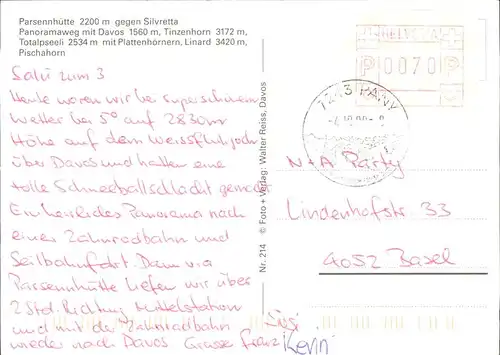 Parsennhütte 2200 m gegen Silvretta
Panoramaweg mit Davos 1560 m, Tinzenhorn 3172 m,
Totalpseeli 2534 m mit Plattenhörnern, Linard 3420 m,
Pischahorn
Salü zum 3
Heute waren wir bei superschönem
Wetter bei 5° auf 2830m
Höhe auf dem Weissfluhjoch
über Davos und hatten eine
tolle Schneeballschlacht gemacht
Ein herrliches Panorama nach
einer Zahnradbahn und
Seilbahnfahrt. Dann via
Parsennhütte liefen wir über
2 Std. Richtung Mittelstation
und mit der Zahnradbahn
wieder nach Davos Grüsse Franz
Kevin
Nr. 214 © Foto + Verlag: Walter Reiss, Davos
HELVETIA
P 0070 P
N+A Party
Lindenhofstr. 33
4052 Basel